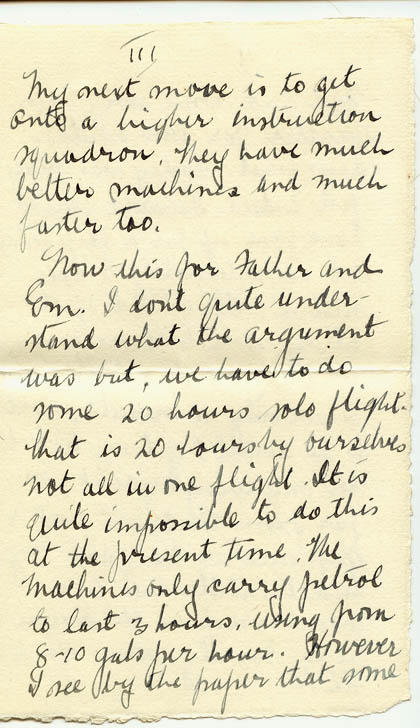 III
My next move is to get
onto a higher instruction
squadron. They have much
better machines and much
faster too.
Now this for Father and
Em. I don't quite under-
stand what the argument
was but, we have to do
some 20 hours solo flight.
that is 20 hours by ourselves
not all in one flight. It is
quite impossible to do this
at the present time. The
machines only carry petrol
to last 3 hours, using from
8-10 gals per hour. However
I see by the paper that some